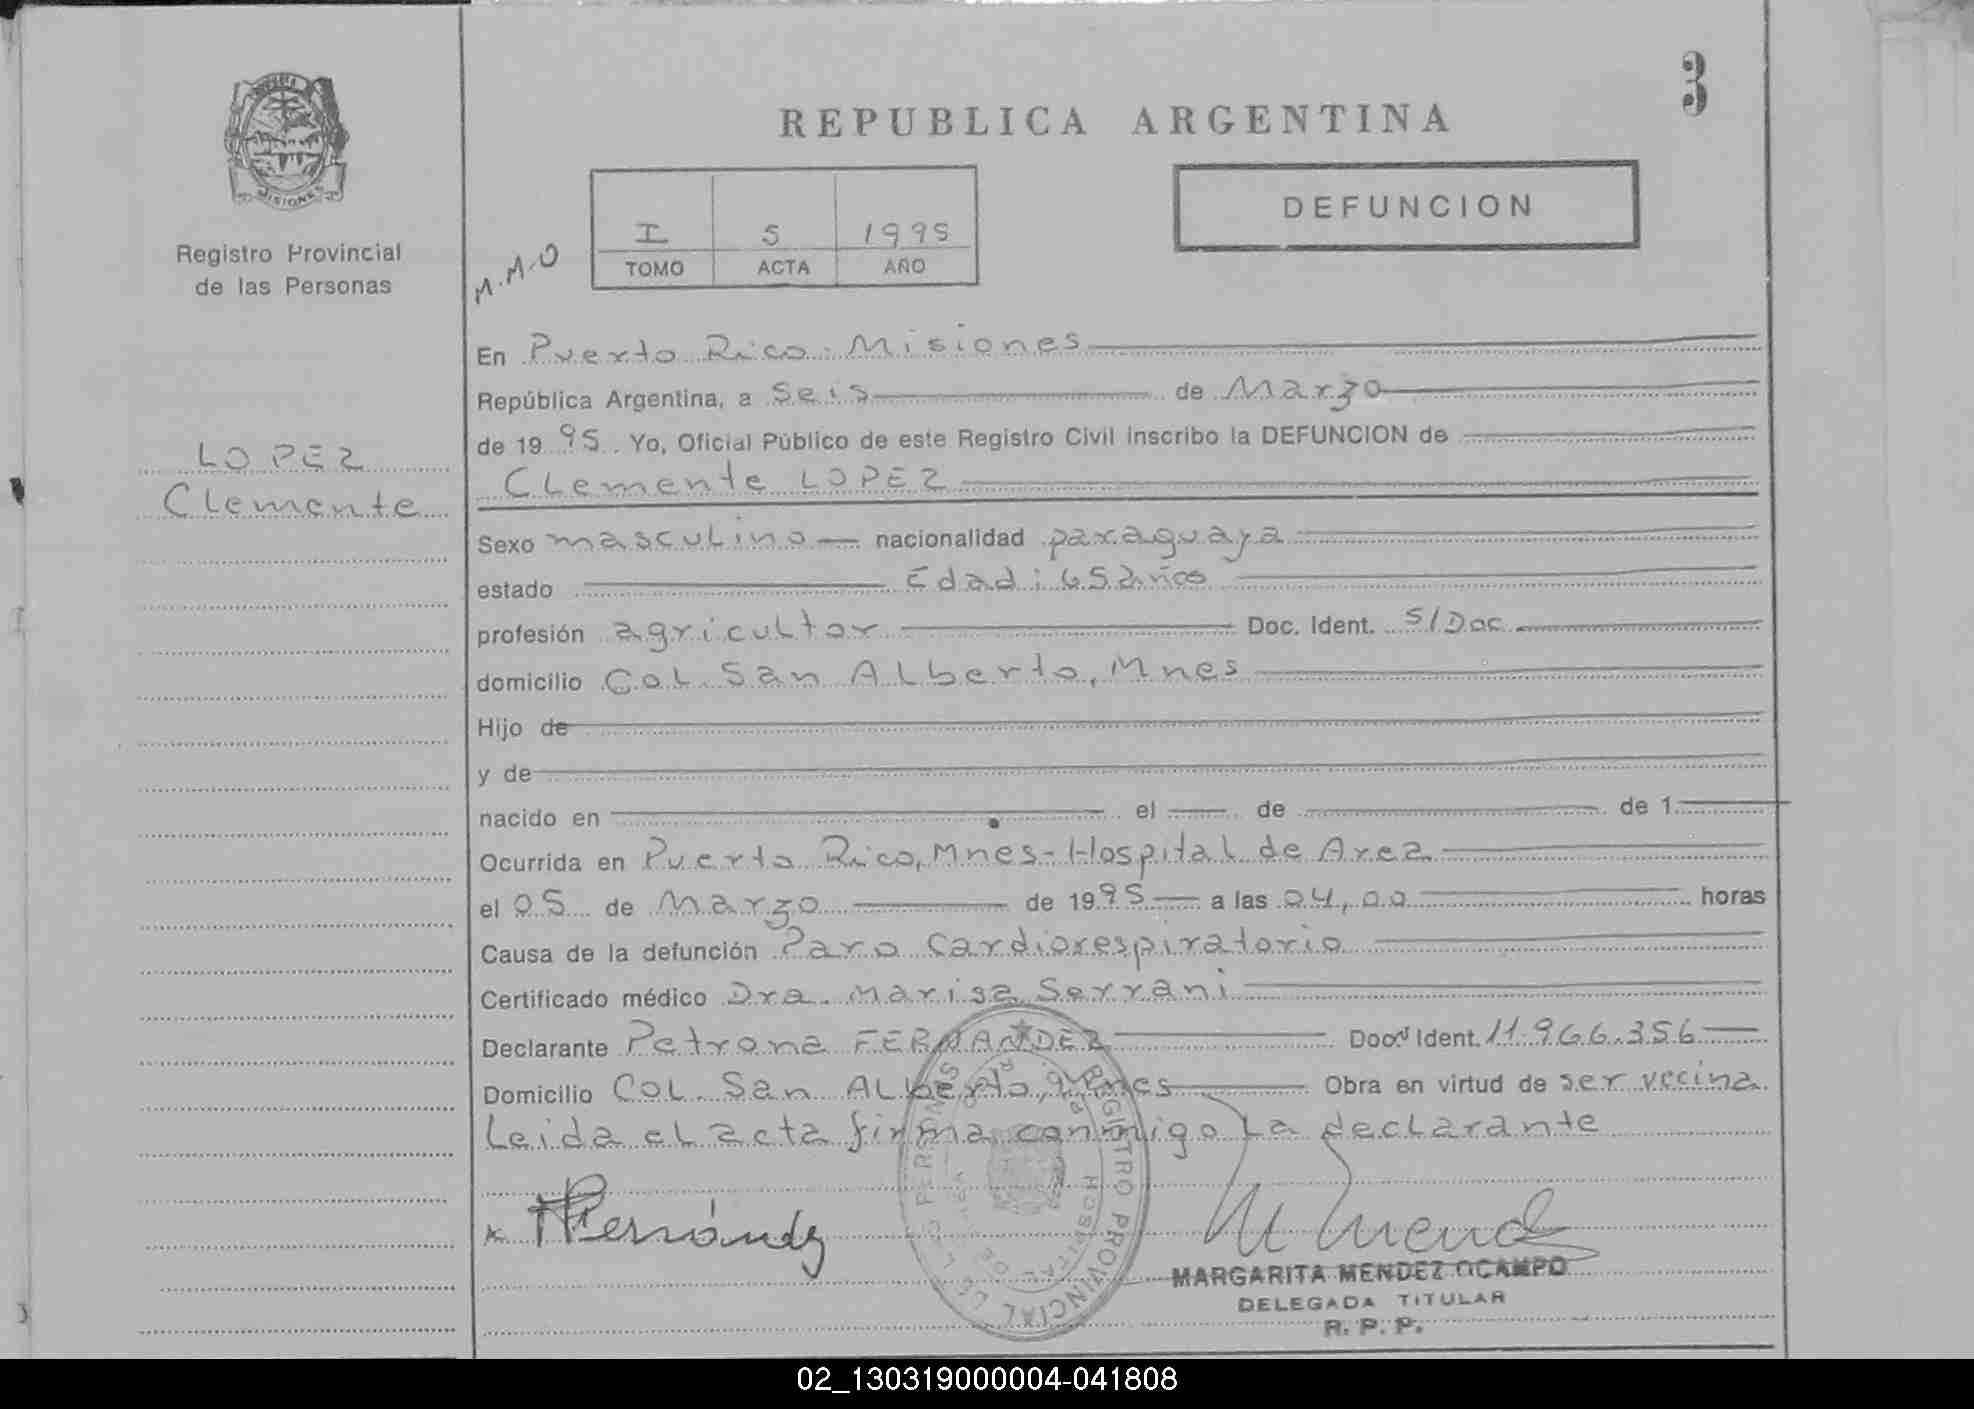 3
REPUBLICA ARGENTINA
MISIONES
Registro Provincial
de las Personas
M.M.O
I 5 1995
TOMO ACTA AÑO
DEFUNCION
LOPEZ
Clemente
En Puerto Rico. Misiones
República Argentina, a Seis de Marzo
de 19 95. Yo, Oficial Público de este Registro Civil inscribo la DEFUNCION de
Clemente LOPEZ
Sexo masculino nacionalidad paraguaya
estado Edad: 65 años
profesión agricultor Doc. Ident. S/Doc
domicilio Col. San Alberto, Mnes
Hijo de
y de
nacido en el de de 1
Ocurrida en Puerto Rico, Mnes-Hospital de Area
el 05 de Marzo de 19 95 a las 04,00 horas
Causa de la defunción Paro cardiorespiratorio
Certificado médico Dra. Marisa Serrani
Declarante Petrona FERNANDEZ Doc. Ident. 11.966.356
Domicilio Col. San Alberto, Mnes Obra en virtud de ser vecina
Leida el acta firma conmigo la declarante
REGISTRO PROVINCIAL DE LAS PERSONAS
HOSPITAL DE
PFernández
M Mendez
MARGARITA MENDEZ OCAMPO
DELEGADA TITULAR
R. P. P.
02_130319000004-041808